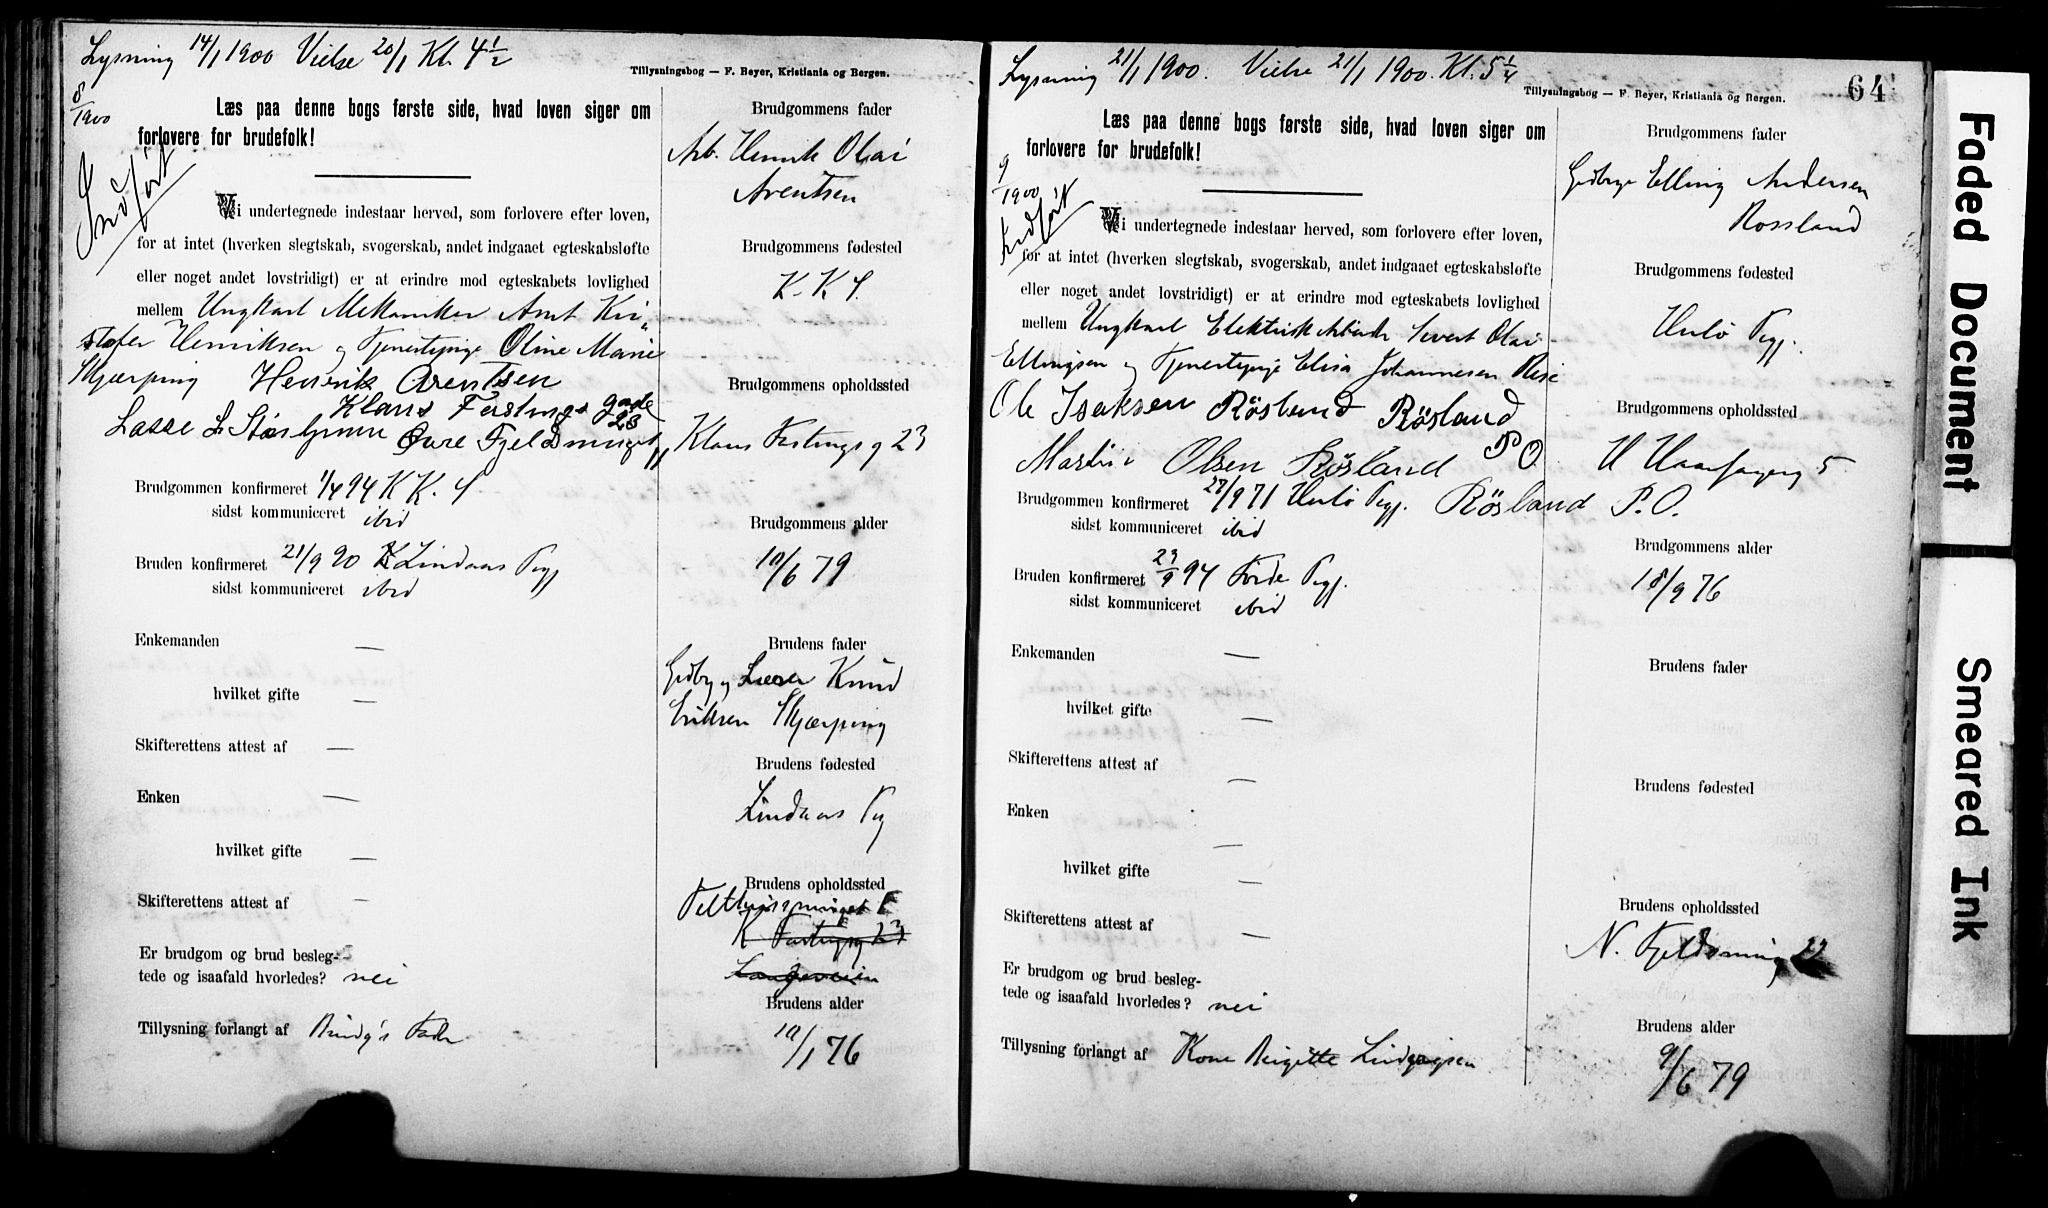 Lysning 14/1 1900 Vielse 20/1 Kl. 4 1/2
Tillysningsbog — F. Beyer, Kristiania og Bergen.
8/1900
Læs paa denne bogs første side, hvad loven siger om
forlovere for brudefolk!
Indført
Vi undertegnede indestaar herved, som forlovere efter loven,
for at intet (hverken slegtskab, svogerskab, andet indgaaet egteskabsløfte
eller noget andet lovstridigt) er at erindre mod egteskabets lovlighed
mellem Ungkarl Mekaniker Arnt Kri-
stofer Henriksen og Tjenestepige Oline Marie
Skjærping Henrik Arentsen
Klaus Fastings gade 23
Lasse L Øvre Fjeldsmuget
Brudgommen konfirmeret 1/4 94 K K. S
sidst kommuniceret ibid
Bruden konfirmeret 21/9 90 Lindaas Pgj
sidst kommuniceret ibid
Enkemanden —
hvilket gifte —
Skifterettens attest af —
Enken —
hvilket gifte —
Skifterettens attest af —
Er brudgom og brud besleg-
tede og isaafald hvorledes? nei
Tillysning forlangt af Brudg's Fader
Brudgommens fader
Arb. Henrik Olai
Arentsen
Brudgommens fødested
K. K S.
Brudgommens opholdssted
Klaus Fastings g 23
Brudgommens alder
10/6 79
Brudens fader
Gdbr og Lærer Knud
Eriksen Skjærping
Brudens fødested
Lindaas Pg
Brudens opholdssted
K Fastings g 23
Langeveien
Brudens alder
10/1 76
Lysning 21/1 1900. Vielse 21/1 1900. Kl. 5 1/4
64
Tillysningsbog — F. Beyer, Kristiania og Bergen.
Læs paa denne bogs første side, hvad loven siger om
forlovere for brudefolk!
9/1900
Indført
Vi undertegnede indestaar herved, som forlovere efter loven,
for at intet (hverken slegtskab, svogerskab, andet indgaaet egteskabsløfte
eller noget andet lovstridigt) er at erindre mod egteskabets lovlighed
mellem Ungkarl Elektrisk Arbeider Sivert Olai
Ellingsen og Tjenestepige Elisa Johannesen
Ole Isaksen Røsland Røsland
P O
Martin Olsen Røsland
Brudgommen konfirmeret 27/9 71 Herlø Pgj. Røsland P. O.
sidst kommuniceret ibid
Bruden konfirmeret 23/9 94 Førde Pgj.
sidst kommuniceret ibid
Enkemanden —
hvilket gifte —
Skifterettens attest af —
Enken —
hvilket gifte —
Skifterettens attest af —
Er brudgom og brud besleg-
tede og isaafald hvorledes? nei
Tillysning forlangt af Kone Birgitte
Brudgommens fader
Gdbrg Elling Andersen
Rossland
Brudgommens fødested
Herlø Pgj.
Brudgommens opholdssted
5
Brudgommens alder
18/9 76
Brudens fader
Brudens fødested
Brudens opholdssted
N. Fjeldsmug 22
Brudens alder
9/6 79
Faded Document
Smeared Ink